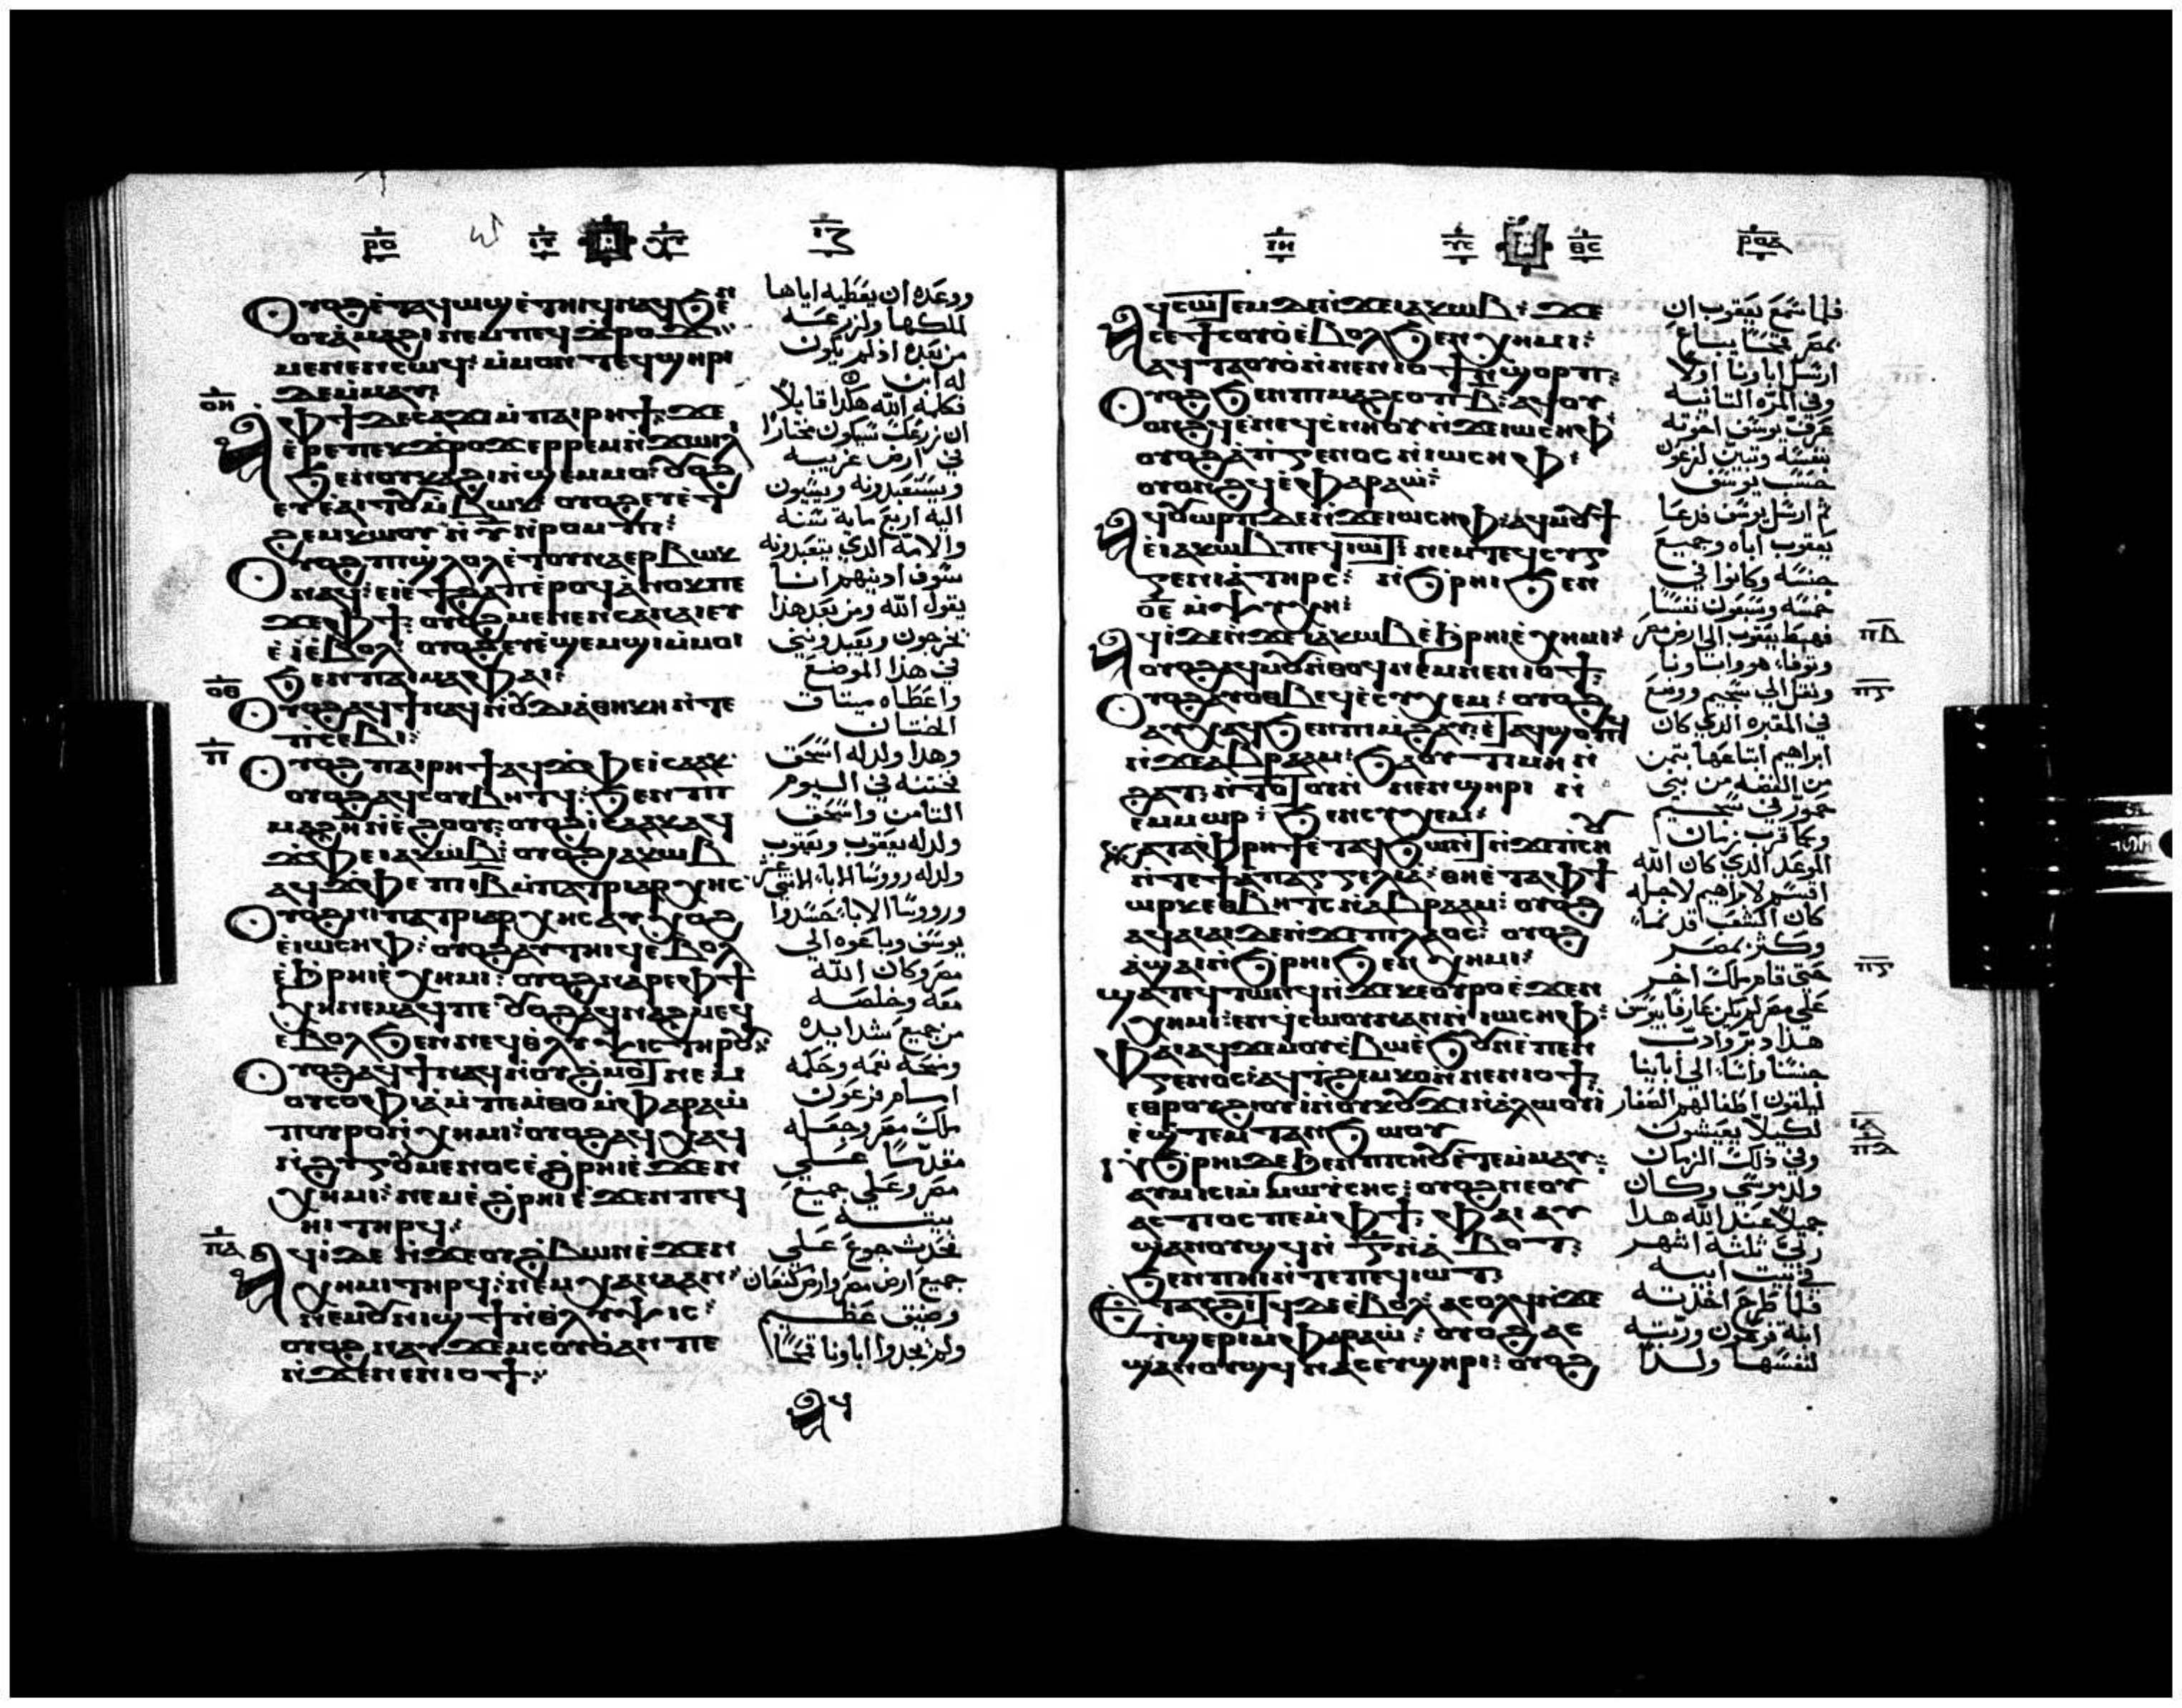 ⲣⲟ
ⲟⲩⲟϩ ⲉⲧⲁϥⲱϣ ⲉⲧⲏⲓϥ ⲛⲁϥ ϧⲉⲛ
ⲟⲩⲁⲙⲁϩⲓ ⲛⲉⲙ ⲡⲉϥϫⲣⲟϫ
ⲙⲉⲛⲉⲛⲥⲱϥ: ⲙⲙⲟⲛ ⲧⲉϥϣⲏⲣⲓ
ⲇⲉ ⲙⲙⲁⲩ:
ⲟⲏ
ⲁ ⲫϯ ⲇⲉ ⲥⲁϫⲓ ⲙⲡⲁⲓⲣⲏϯ: ϫⲉ
ⲉⲣⲉ ⲡⲉⲕϫⲣⲟϫ ⲉⲣⲣⲉⲙⲛϫⲱⲓⲗⲓ
ϧⲉⲛ ⲟⲩⲕⲁϩⲓ ⲛϣⲉⲙⲙⲟ: ⲟⲩⲟϩ
ⲉⲩⲉⲁⲓⲧⲟⲩ ⲙⲃⲱⲕ ⲟⲩⲟϩ ⲉⲩⲉϯ
ϩⲉⲙⲕⲱⲟⲩ ⲛⲩ ⲛⲣⲟⲙⲡⲓ:
ⲟⲩⲟϩ ⲡⲓϣⲗⲟⲗ ⲉⲧⲟⲩⲛⲁⲉⲣⲃⲱⲕ
ⲛⲁϥ: ⲉⲓⲉϯϩⲁⲡ ⲉⲣⲟϥ ⲁⲛⲟⲕ ⲡⲉ
ϫⲉ ⲫϯ: ⲟⲩⲟϩ ⲙⲉⲛⲉⲛⲥⲁ ⲛⲁⲓ ⲉⲩ
ⲉⲓ ⲉⲃⲟⲗ: ⲟⲩⲟϩ ⲉⲩⲉϣⲉⲙϣⲓ ⲙⲙⲟⲓ
ϧⲉⲛ ⲡⲁⲓⲙⲁ ⲫⲁⲓ:
ⲟⲑ
ⲟⲩⲟϩ ⲁϥϯ ⲛⲁϥ ⲛⲟⲩⲇⲓⲁⲑⲏⲕⲏ ⲛⲧⲉ
ⲡⲥⲉⲃⲓ:
ⲡ
ⲟⲩⲟϩ ⲡⲁⲓⲣⲏϯ ⲁϥϫⲫⲉ ⲓⲥⲁⲁⲕ:
ⲟⲩⲟϩ ⲁϥⲥⲟⲩⲃⲏⲧϥ: ϧⲉⲛ ⲡⲓ
ⲙⲁϩⲏ ⲛⲉϩⲟⲟⲩ: ⲟⲩⲟϩ ⲓⲥⲁⲁⲕ ⲁϥ
ϫⲫⲉ ⲓⲁⲕⲱⲃ: ⲟⲩⲟϩ ⲓⲁⲕⲱⲃ
ⲁϥϫⲫⲉ ⲡⲓⲓⲃ ⲙⲡⲁⲧⲣⲓⲁⲣⲭⲏⲥ
ⲟⲩⲟϩ ⲛⲓⲡⲁⲧⲣⲓⲁⲣⲭⲏⲥ ⲁⲩⲭⲟϩ
ⲉⲓⲱⲥⲏⲫ: ⲟⲩⲟϩ ⲁⲩⲧⲏⲓϥ ⲉⲃⲟⲗ
ⲉϧⲣⲏⲓ ⲉⲭⲏⲙⲓ: ⲟⲩⲟϩ ⲛⲁⲣⲉ ⲫϯ
ⲭⲏ ⲛⲉⲙⲁϥ ⲡⲉ ⲟⲩⲟϩ ⲁϥⲛⲁϩⲙⲉϥ
ⲉⲃⲟⲗ ϧⲉⲛ ⲛⲉϥⲑⲗⲩⲯⲓⲥ ⲧⲏⲣⲟⲩ:
ⲟⲩⲟϩ ⲁϥϯ ⲛⲁϥ ⲛⲟⲩϩⲙⲟⲧ ⲛⲉⲙ
ⲟⲩⲥⲟⲫⲓⲁ ⲙⲡⲉⲙⲑⲟ ⲙⲫⲁⲣⲁⲱ
ⲡⲟⲩⲣⲟ ⲛⲭⲏⲙⲓ: ⲟⲩⲟϩ ⲁϥⲭⲁϥ
ⲛϩⲩⲅⲟⲩⲙⲉⲛⲟⲥ ⲉϩⲣⲏⲓ ⲉϫⲉⲛ
ⲭⲏⲙⲓ: ⲛⲉⲙ ⲉϩⲣⲏⲓ ⲉϫⲉⲛ ⲡⲉϥ
ⲏⲓ ⲧⲏⲣϥ:
ⲡⲁ
ⲁϥⲓ ⲇⲉ ⲛϫⲉ ⲟⲩϩⲃⲱⲛ ⲉϫⲉⲛ
ⲭⲏⲙⲓ ⲧⲏⲣϥ: ⲛⲉⲙ ⲭⲁⲛⲁⲁⲛ:
ⲛⲉⲙ ⲟⲩⲛⲓϣϯ ⲛⲑⲗⲩⲯⲓⲥ:
ⲟⲩⲟϩ ⲛⲁⲩϫⲉⲙ ⲥⲟⲩⲟ ⲁⲛ ⲡⲉ
ⲛϫⲉ ⲛⲉⲛⲓⲟϯ:
ⲁϥ
ووعده ان يعطيه اياها
لملكها ولزرعه
من بعده اذ لم يكون
له ابن
فكلمه الله هكذا قايلا
ان زرعك سيكون مختارا
في ارض غريبه
ويستعبدونه ويسيون
اليه اربع مايه سنه
والامه الذي يتعبدونه
سوف ادينهم انا
يقول الله ومن بعد هذا
يخرجون ويعبدونني
في هذا الموضع
واعطاه ميتاق
الختان
وهذا ولد له اسحق
فختنه في اليوم
التامن واسحق
ولد له يعقوب ويعقوب
ولد له رووسا الاباء الاتني عشر
ورووسا الاباء حسدوا
يوسف وباعوه الي
مصر وكان الله
معه وخلصه
من جميع شدايده
ومنحه نعمه وحكمه
امام فرعون
ملك مصر وجعله
مقدما علي
مصر وعلي جميع
بيته
فحدث جوع علي
جميع ارض مصر وارض كنعان
وضيق عظيم
ولم يجدوا اباونا قمحا
ⲣⲟⲁ
ⲁϥⲥⲱⲧⲉⲙ ⲇⲉ ⲛϫⲉ ⲓⲁⲕⲱⲃ: ϫⲉ
ⲥⲉϯ ⲥⲟⲩⲟ ⲉⲃⲟⲗ ϧⲉⲛ ⲭⲏⲙⲓ:
ⲁϥⲧⲁⲟⲩⲟ ⲛⲛⲉⲛⲓⲟϯ ⲛϣⲟⲣⲡ:
ⲟⲩⲟϩ ϧⲉⲛ ⲡⲙⲁϩⲥⲟⲡ ⲃ: ⲁϥⲟⲩ
ⲟⲛϩϥ ⲉⲛⲉϥⲥⲛⲏⲟⲩ ⲛϫⲉ ⲓⲱⲥⲏⲫ
ⲟⲩⲟϩ ⲁⲡⲅⲉⲛⲟⲥ ⲛⲓⲱⲥⲏⲫ:
ⲟⲩⲟⲛϩϥ ⲉⲫⲁⲣⲁⲱ:
ⲁϥⲟⲩⲱⲣⲡ ⲇⲉ ⲛϫⲉ ⲓⲱⲥⲏⲫ: ⲁϥⲙⲟⲩϯ
ⲉⲓⲁⲕⲱⲃ ⲡⲉϥⲓⲱⲧ: ⲛⲉⲙ ⲧⲉϥⲥⲩⲅ
ⲅⲉⲛⲓⲁ ⲧⲏⲣⲥ: ⲛϧⲣⲏⲓ ϧⲉⲛ
ⲟⲉ ⲙⲯⲩⲭⲏ:
ⲁϥⲓ ⲇⲉ ⲛϫⲉ ⲓⲁⲕⲱⲃ ⲉϧⲣⲏⲓ ⲉⲭⲏⲙⲓ:
ⲡⲃ
ⲟⲩⲟϩ ⲁϥⲙⲟⲩ ⲛⲑⲟϥ ⲛⲉⲙ ⲛⲉⲛⲓⲟϯ:
ⲟⲩⲟϩ ⲁⲩⲟⲑⲃⲉϥ ⲉⲥⲩⲭⲉⲙ: ⲟⲩⲟϩ
ⲁⲩⲭⲁϥ ϧⲉⲛ ⲡⲓⲙϩⲁⲩ ⲉⲧⲁϥϣⲟⲡϥ
ⲛϫⲉ ⲁⲃⲣⲁⲁⲙ: ϧⲁ ⲟⲩⲧⲓⲙⲏ ⲛ
ϩⲁⲧ: ⲛⲧⲟⲧⲟⲩ ⲛⲛⲉⲛϣⲏⲣⲓ ⲛ
ⲉⲙⲙⲱⲣ: ϧⲉⲛ ⲥⲩⲭⲉⲙ:
ⲕⲁⲧⲁ ⲫⲣⲏϯ ⲉⲧⲁϥϧⲱⲛⲧ ⲛϫⲉ ⲡⲥⲏⲟⲩ
ⲛⲧⲉ ϯⲉⲡⲁⲅⲅⲉⲗⲓⲁ: ⲑⲏ ⲉⲧⲁ ⲫϯ
ⲱⲣⲕ ⲉⲑⲃⲏⲧⲥ ⲛⲁⲃⲣⲁⲁⲙ: ⲟⲩⲟϩ
ⲁϥⲁⲓⲁⲓ ⲇⲉ ⲛϫⲉ ⲡⲗⲁⲟⲥ: ⲟⲩⲟϩ
ⲁϥⲁϣⲁⲓ ⲛϧⲣⲏⲓ ϧⲉⲛ ⲭⲏⲙⲓ:
ϣⲁⲧⲉϥⲧⲱⲛϥ ⲛϫⲉ ⲕⲉⲟⲩⲣⲟ ⲉϫⲉⲛ
ⲭⲏⲙⲓ: ⲉⲛϥⲥⲱⲟⲩⲛ ⲁⲛ ⲛⲓⲱⲥⲏⲫ:
ⲫⲁⲓ ⲁϥϫⲉⲙⲟⲩⲉⲃⲱ ⲉϧⲟⲩⲛ ⲉⲡⲉⲛ
ⲅⲉⲛⲟⲥ: ⲁϥⲧϩⲉⲙⲕⲟ ⲛⲛⲉⲛⲓⲟϯ:
ⲉⲑⲣⲟⲩϩⲓⲟⲩⲓ ⲛⲛⲟⲩⲕⲟⲩϫⲓ ⲛⲁⲗⲱⲟⲩⲓ
ⲉϣⲧⲉⲙⲧⲁⲛϧⲱⲟⲩ
ⲛϧⲣⲏⲓ ⲇⲉ ϧⲉⲛ ⲡⲓⲥⲏⲟⲩ ⲉⲧⲉⲙⲙⲁⲩ:
ⲡⲇ
ⲁⲩⲙⲓⲥⲓ ⲙⲙⲱⲩⲥⲏⲥ: ⲟⲩⲟϩ ⲛⲉⲟⲩ
ⲁⲥⲧⲓⲟⲥ ⲡⲉ ⲙⲫϯ: ⲫⲁⲓ ⲁⲩ
ϣⲁⲛⲟⲩϣϥ ⲛ ⲅ ⲛⲁⲃⲟⲧ:
ϧⲉⲛ ⲡⲏⲓ ⲛⲧⲉ ⲡⲉϥⲓⲱⲧ:
ⲉⲧⲁⲥϩⲓⲧϥ ⲇⲉ ⲉⲃⲟⲗ: ⲁⲥⲟⲗϥ ⲛϫⲉ
ⲧϣⲉⲣⲓ ⲙⲫⲁⲣⲁⲱ: ⲟⲩⲟϩ ⲁⲥ
ϣⲁⲛⲟⲩϣϥ ⲛⲁⲥ ⲉⲩϣⲏⲣⲓ: ⲟⲩⲟϩ
فلما سمع يعقوب ان
بمصر قمحا يباع
ارسل اباونا اولا
وفي المره التانيه
عرف يوسف اخوته
بنفسه وتبين لفرعون
جنس يوسف
تم ارسل يوسف فدعا
يعقوب اباه وجميع
جنسه وكانوا في
خمسه وسبعون نفسا
فهبط يعقوب الي ارض مصر
وتوفا هو واباونا
ونقل الي شخيم ووضع
في المقبره الذي كان
ابراهيم ابتاعها بتمن
من الفضه من بني
حمور في شخيم
وكما قرب زمان
الموعد الذي كان الله
اقسم لابراهيم لاجله
كان الشعب قد نما
وكثر بمصر
حتي قام ملك اخر
علي مصر لم يكن عارفا بيوسف
هذا
جنسنا واسا الي ابائنا
ليلقون اطفالهم الصغار
لكيلا يعيشون
وفي ذلك الزمان
ولد موسي وكان
جميلا عند الله هذا
ربي تلتة اشهر
في بيت ابيه
فلما طرح اخذته
ابنة فرعون وربته
لنفسها ولدا